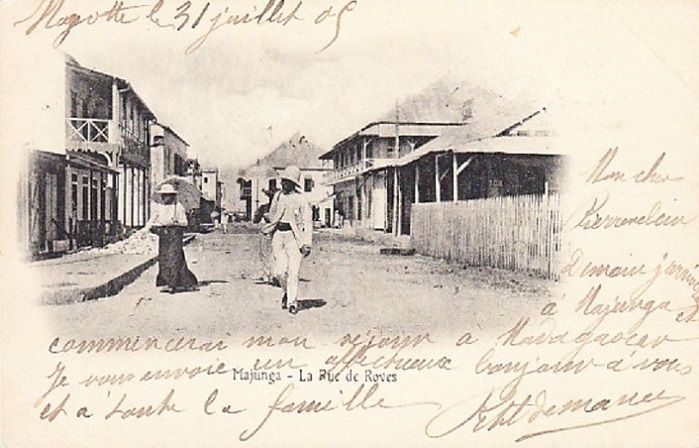 Mayotte le 31 juillet 05
Mon cher
Demain j'arrive
à Majunga et
commencerai mon séjour à Madagascar
Je vous envoie un affectueux bonjour à vous
et à toute la famille
Majunga - La Rue de Roves